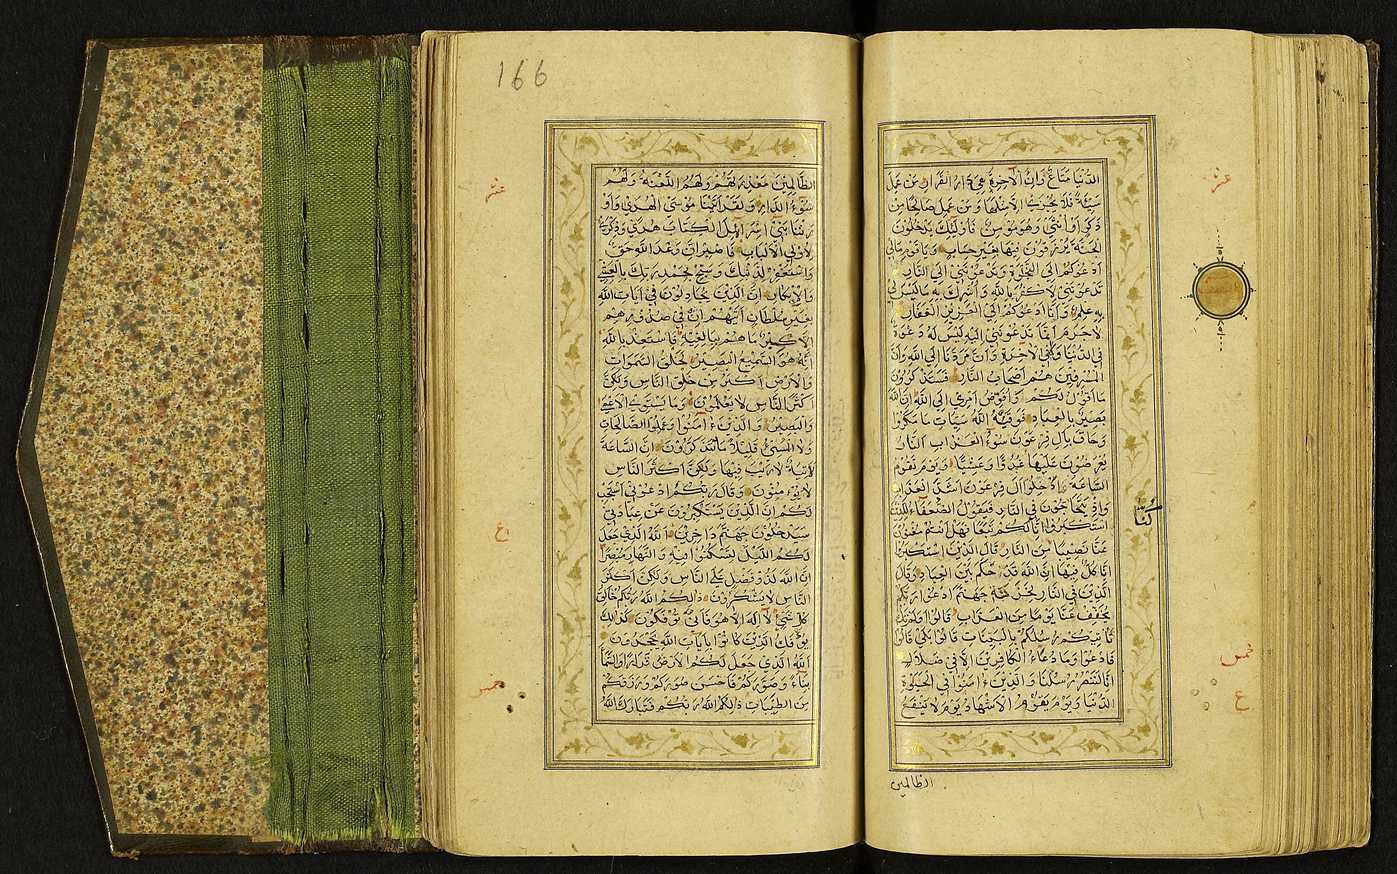 الدُّنْيَا مَتَاعٌ وَاِنَّ الْآخِرَةَ هِيَ دَارُ الْقَرَارِ مَنْ عَمِلَ
سَيِّئَةً فَلَا يُجْزٰى اِلَّا مِثْلَهَا وَمَنْ عَمِلَ صَالِحًا مِنْ
ذَكَرٍ اَوْ اُنْثٰى وَهُوَ مُؤْمِنٌ فَاُولٰئِكَ يَدْخُلُونَ
الْجَنَّةَ يُرْزَقُونَ فِيهَا بِغَيْرِ حِسَابٍ وَيَا قَوْمِ مَالِي
اَدْعُوكُمْ اِلَى النَّجٰوةِ وَتَدْعُونَنِي اِلَى النَّارِ
تَدْعُونَنِي لِاَكْفُرَ بِاللّٰهِ وَاُشْرِكَ بِهِ مَا لَيْسَ لِي
بِهِ عِلْمٌ وَاَنَا اَدْعُوكُمْ اِلَى الْعَزِيزِ الْغَفَّارِ
لَا جَرَمَ اَنَّمَا تَدْعُونَنِي اِلَيْهِ لَيْسَ لَهُ دَعْوَةٌ
فِي الدُّنْيَا وَلَا فِي الْاٰخِرَةِ وَاَنَّ مَرَدَّنَا اِلَى اللّٰهِ وَاَنَّ
الْمُسْرِفِينَ هُمْ اَصْحَابُ النَّارِ فَسَتَذْكُرُونَ
مَا اَقُولُ لَكُمْ وَاُفَوِّضُ اَمْرِي اِلَى اللّٰهِ اِنَّ اللّٰهَ
بَصِيرٌ بِالْعِبَادِ فَوَقٰيهُ اللّٰهُ سَيِّاٰتِ مَا مَكَرُوا
وَحَاقَ بِاٰلِ فِرْعَوْنَ سُوءُ الْعَذَابِ النَّارُ
يُعْرَضُونَ عَلَيْهَا غُدُوًّا وَعَشِيًّا وَيَوْمَ تَقُومُ
السَّاعَةُ اَدْخِلُوا اٰلَ فِرْعَوْنَ اَشَدَّ الْعَذَابِ
وَاِذْ يَتَحَاجُّونَ فِي النَّارِ فَيَقُولُ الضُّعَفٰاءُ لِلَّذِينَ
اسْتَكْبَرُوا اِنَّا لَكُمْ تَبَعًا فَهَلْ اَنْتُمْ مُغْنُونَ
كُنَّا
عَنَّا نَصِيبًا مِنَ النَّارِ قَالَ الَّذِينَ اسْتَكْبَرُوا
اِنَّا كُلٌّ فِيهَا اِنَّ اللّٰهَ قَدْ حَكَمَ بَيْنَ الْعِبَادِ وَقَالَ
الَّذِينَ فِي النَّارِ لِخَزَنَةِ جَهَنَّمَ ادْعُوا رَبَّكُمْ
يُخَفِّفْ عَنَّا يَوْمًا مِنَ الْعَذَابِ قَالُوا اَوَلَمْ تَكُ
تَأْتِيكُمْ رُسُلُكُمْ بِالْبَيِّنَاتِ قَالُوا بَلٰى قَالُوا
فَادْعُوا وَمَا دُعَاءُ الْكَافِرِينَ اِلَّا فِي ضَلَالٍ
اِنَّا لَنَنْصُرُ رُسُلَنَا وَالَّذِينَ اٰمَنُوا فِي الْحَيٰوةِ
الدُّنْيَا وَيَوْمَ يَقُومُ الْاَشْهَادُ يَوْمَ لَا يَنْفَعُ
الظالمين
عشر
خمس
ع
166
الظَّالِمِينَ مَعْذِرَتُهُمْ وَلَهُمُ اللَّعْنَةُ وَلَهُمْ
سُوءُ الدَّارِ وَلَقَدْ اٰتَيْنَا مُوسَى الْهُدٰى وَاَوْ
رَثْنَا بَنِي اِسْرَائِيلَ الْكِتَابَ هُدًى وَذِكْرٰى
لِاُولِي الْاَلْبَابِ فَاصْبِرْ اِنَّ وَعْدَ اللّٰهِ حَقٌّ
وَاسْتَغْفِرْ لِذَنْبِكَ وَسَبِّحْ بِحَمْدِ رَبِّكَ بِالْعَشِيِّ
وَالْاِبْكَارِ اِنَّ الَّذِينَ يُجَادِلُونَ فِي اٰيَاتِ اللّٰهِ
بِغَيْرِ سُلْطَانٍ اَتٰيهُمْ اِنْ فِي صُدُورِهِمْ
اِلَّا كِبْرٌ مَا هُمْ بِبَالِغِيهِ فَاسْتَعِذْ بِاللّٰهِ
اِنَّهُ هُوَ السَّمِيعُ الْبَصِيرُ لَخَلْقُ السَّمٰوَاتِ
وَالْاَرْضِ اَكْبَرُ مِنْ خَلْقِ النَّاسِ وَلٰكِنَّ
اَكْثَرَ النَّاسِ لَا يَعْلَمُونَ وَمَا يَسْتَوِي الْاَعْمٰى
وَالْبَصِيرُ وَالَّذِينَ اٰمَنُوا وَعَمِلُوا الصَّالِحَاتِ
وَلَا الْمُسِيءُ قَلِيلًا مَا تَتَذَكَّرُونَ اِنَّ السَّاعَةَ
لَاٰتِيَةٌ لَا رَيْبَ فِيهَا وَلٰكِنَّ اَكْثَرَ النَّاسِ
لَا يُؤْمِنُونَ وَقَالَ رَبُّكُمُ ادْعُونِي اَسْتَجِبْ
لَكُمْ اِنَّ الَّذِينَ يَسْتَكْبِرُونَ عَنْ عِبَادَتِي
سَيَدْخُلُونَ جَهَنَّمَ دَاخِرِينَ اَللّٰهُ الَّذِي جَعَلَ
لَكُمُ اللَّيْلَ لِتَسْكُنُوا فِيهِ وَالنَّهَارَ مُبْصِرًا
اِنَّ اللّٰهَ لَذُو فَضْلٍ عَلَى النَّاسِ وَلٰكِنَّ اَكْثَرَ
النَّاسِ لَا يَشْكُرُونَ ذٰلِكُمُ اللّٰهُ رَبُّكُمْ خَالِقُ
كُلِّ شَيْءٍ لَا اِلٰهَ اِلَّا هُوَ فَاَنّٰى تُؤْفَكُونَ كَذٰلِكَ
يُؤْفَكُ الَّذِينَ كَانُوا بِاٰيَاتِ اللّٰهِ يَجْحَدُونَ
اَللّٰهُ الَّذِي جَعَلَ لَكُمُ الْاَرْضَ قَرَارًا وَالسَّمَاءَ
بِنَاءً وَصَوَّرَكُمْ فَاَحْسَنَ صُوَرَكُمْ وَرَزَقَكُمْ
مِنَ الطَّيِّبَاتِ ذٰلِكُمُ اللّٰهُ رَبُّكُمْ فَتَبَارَكَ اللّٰهُ
عشر
ع
خمس